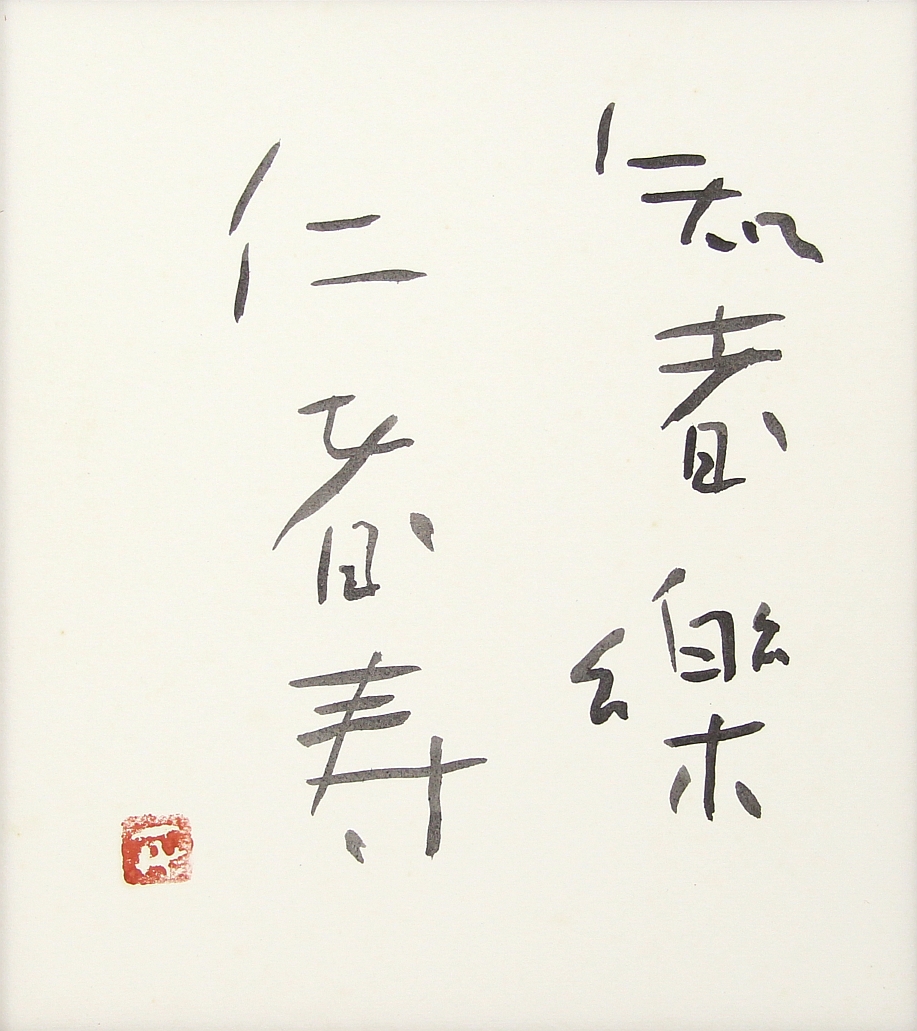 知者樂
仁者寿